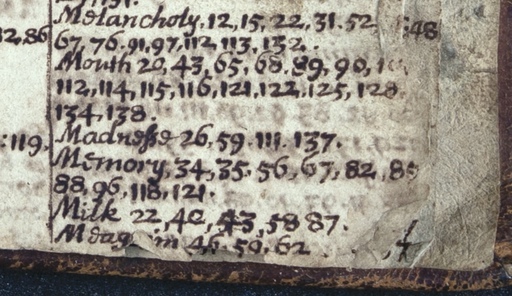 Melancholy. 12, 15, 22, 31. 52, :48
12,86 67, 76. 91, 97, 112, 113, 132.
Mouth 20, 43, 65, 68. 89, 90,
112, 114, 115, 116, 121, 122, 125, 128
134, 138.
:119. Madnesse 26, 59. 111. 137.
Memory, 34, 35. 56, 67, 82, 85
88, 96, 118, 121.
Milk 22, 42, 43, 58 87.
in 46. 50, 62